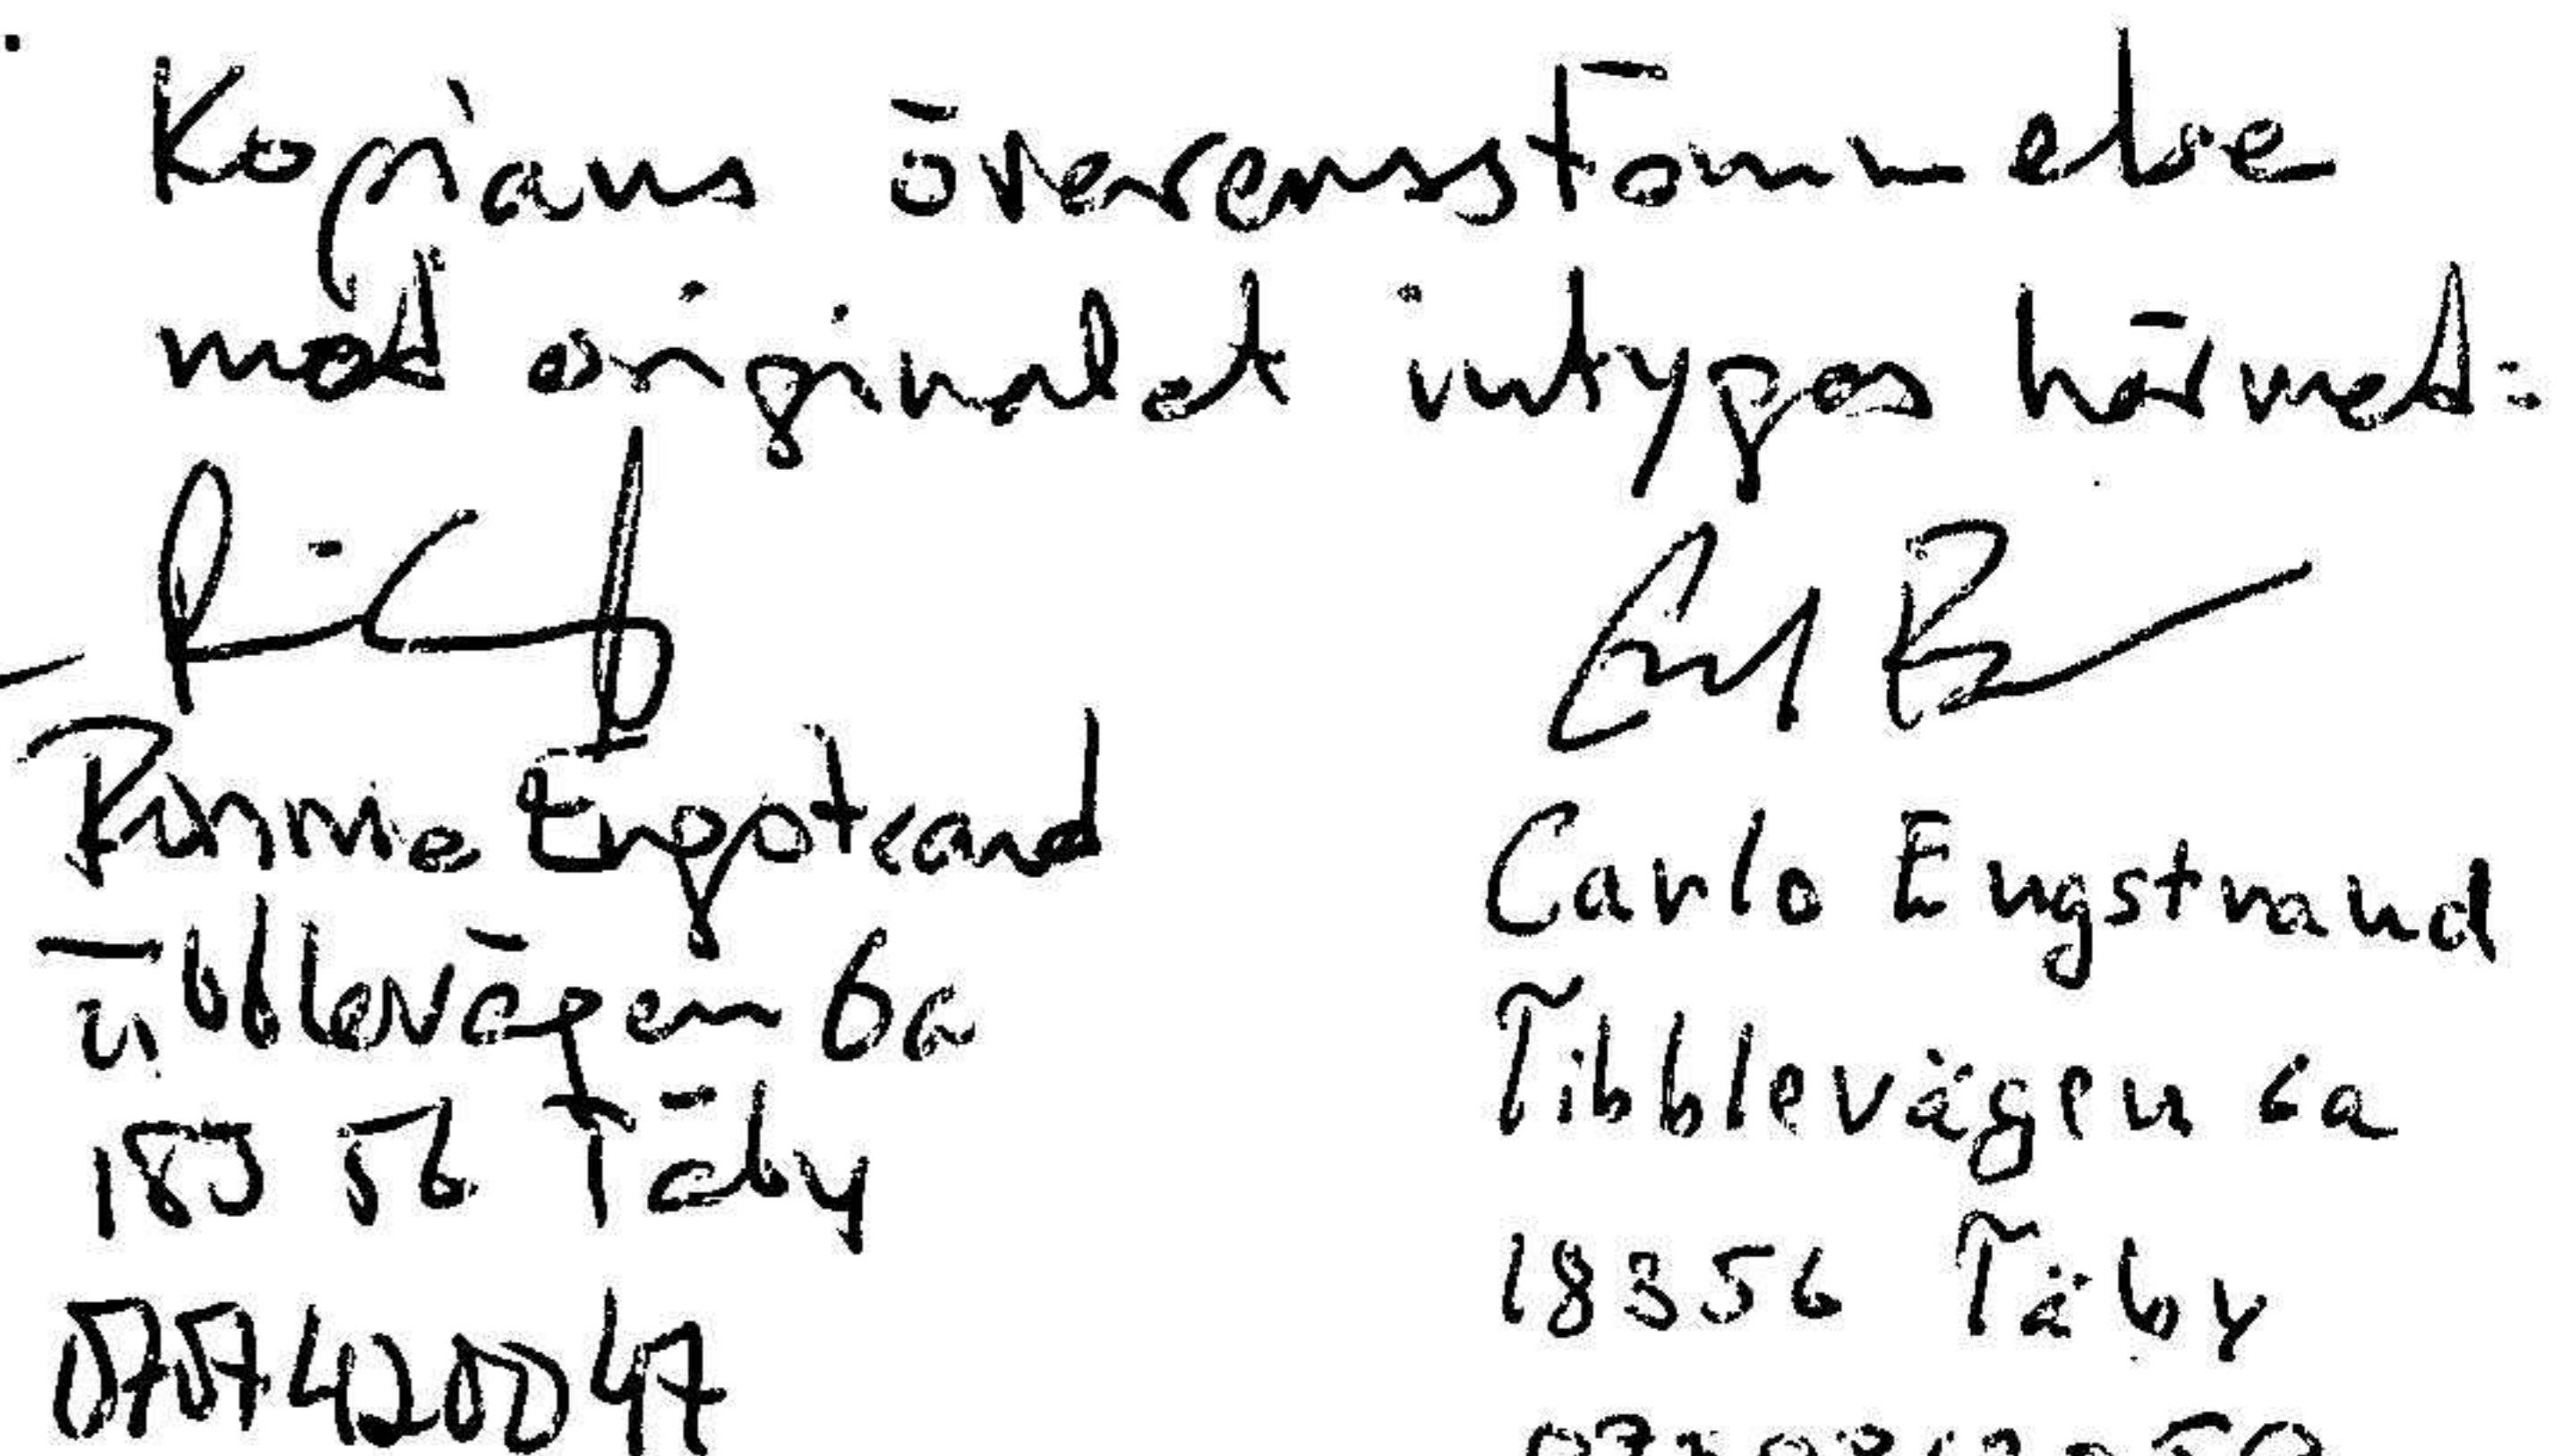 Kopians överensstömmelse
med originalet intygas härmed:
Ronnie Engstrand
Tibblevägen 6a
183 56 Täby
0707420047
Carlo Engstrand
Tibblevägen 6a
18356 Täby